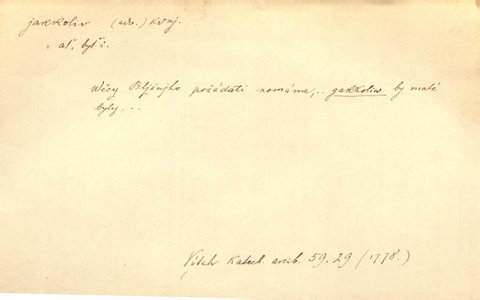 jakkoliv (adv.) konj.
= ať, byť i.
Wěcy Bljžnjho požádati nemáme,.. gakkoliw by malé
byly...
Výtah katech. arcib. 59.29 (1778.)